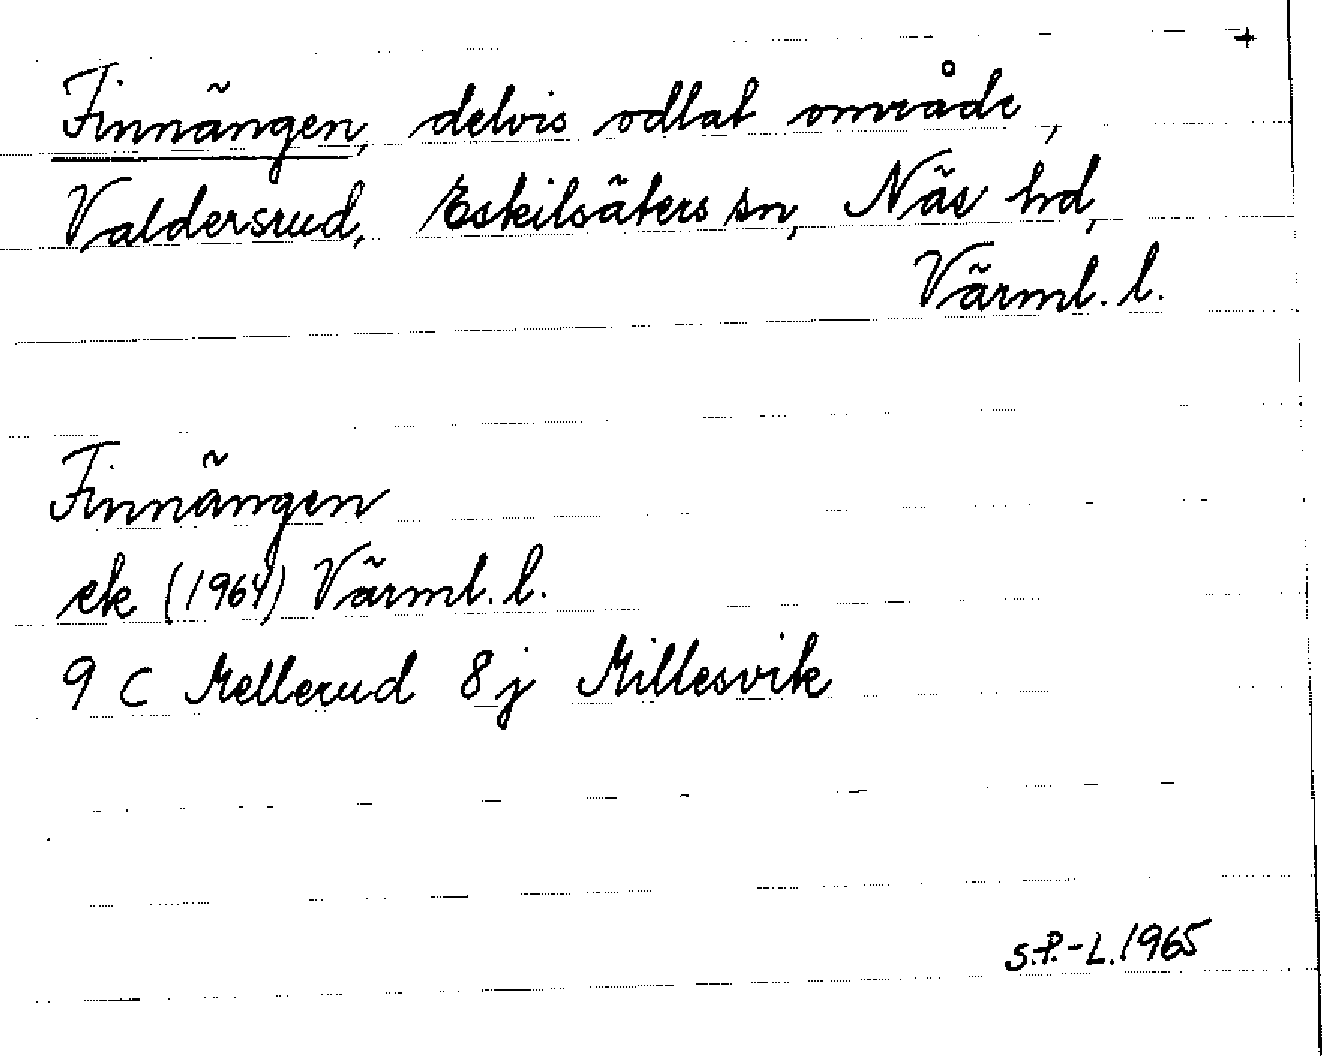 +
Finnängen, delvis odlat område,
Valdersrud, Eskilsäters sn, Näs hd,
Värml. l.
Finnängen
ek (1964) Värml. l.
9 C Mellerud 8 j Millesvik
S.P.-L. 1965